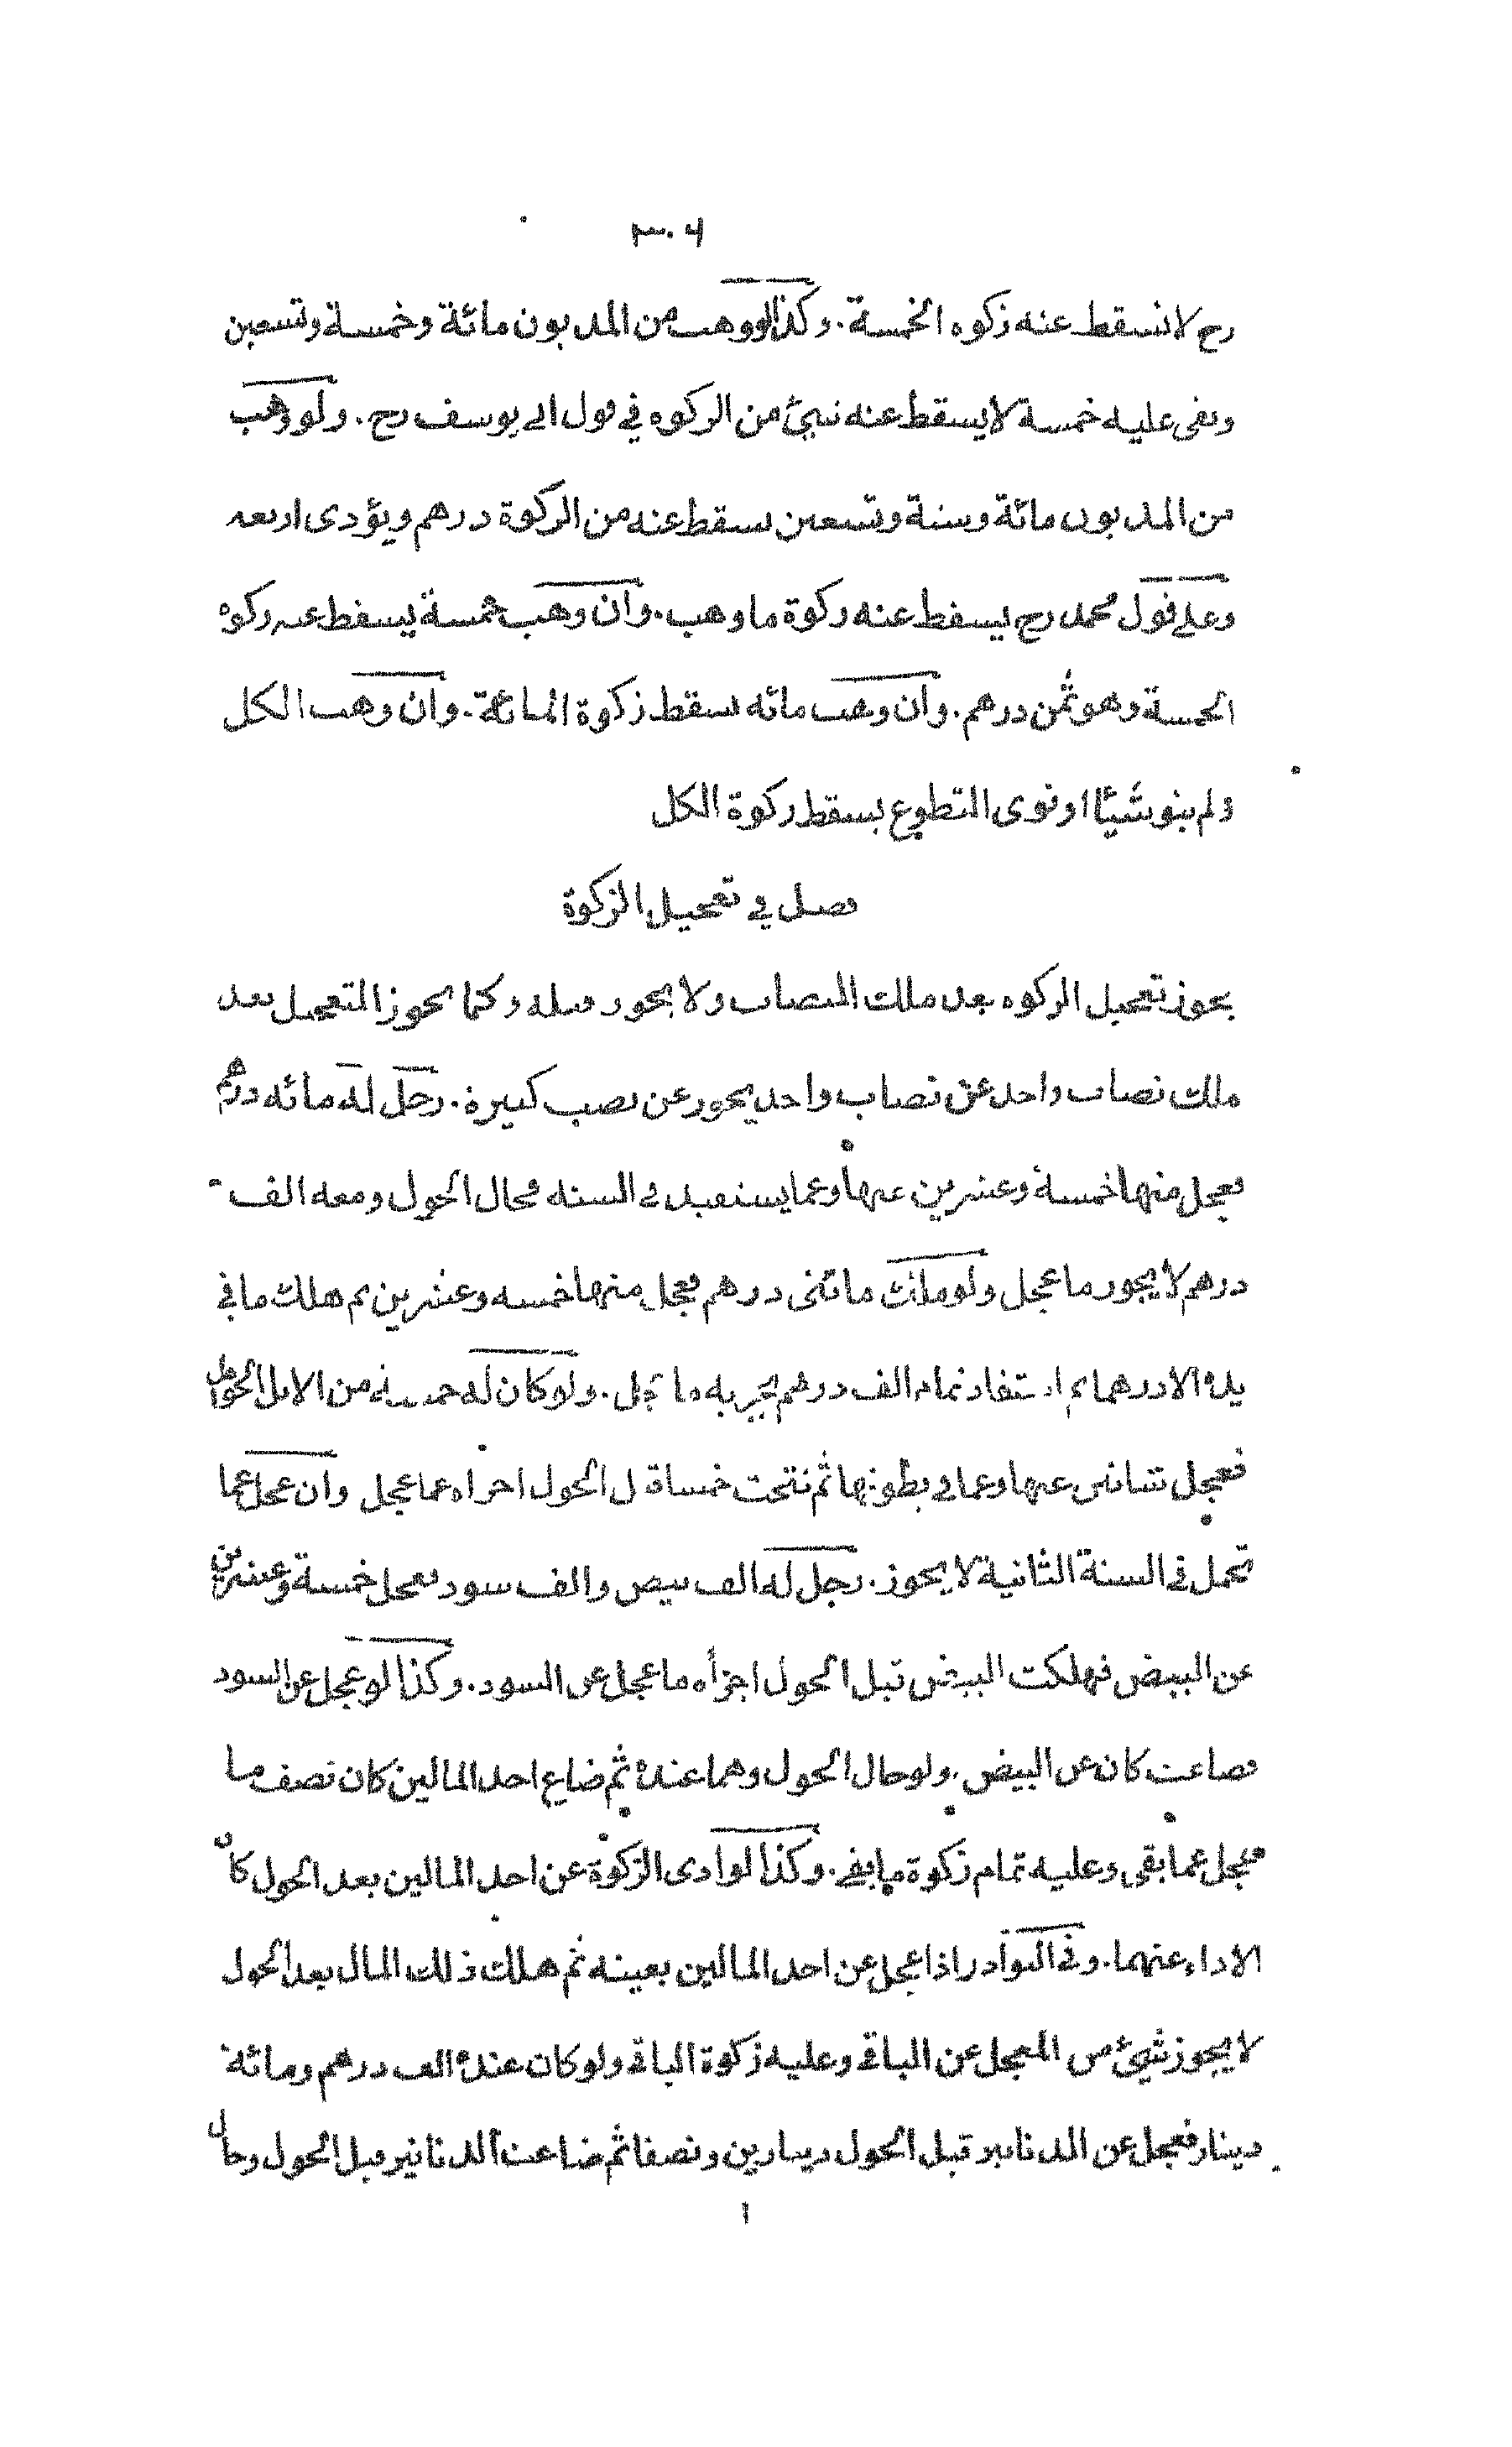 ٣٠٦
رح لا تسقط عنه زكوه الخمسة . وكذا لو وهب من المديون مائة وخمسة وتسعين
وبقى عليه خمسة لا يسقط عنه شيئ من الزكوه في قول ابى يوسف رح . ولو وهب
من المديون مائة وستة وتسعين سقط عنه من الزكوة درهم ويؤدى اربعه
وعلى قول محمد رح يسقط عنه زكوة ما وهب . وان وهب خمسة يسقط عنه زكوه
الخمسة وهو ثمن درهم . وان وهب مائه سقط زكوة المائة . وان وهب الكل
ولم ينو شيئا او نوى التطوع يسقط زكوة الكل
فصل في تعجيل الزكوة
يجوز تعجيل الزكوه بعد ملك النصاب ولا يجوز قبله وكما يجوز التعجيل بعد
ملك نصاب واحد عن نصاب واحد يجوز عن نصب كثيرة . رجل له مائه درهم
فعجل منها خمسة وعشرين عنها وعما يستفيد في السنه فحال الحول ومعه الف
درهم لا يجوز ما عجل ولو ملك مائتى درهم فعجل منها خمسه وعشرين ثم هلك ما في
يده الا درهما ثم استفاد تمام الف درهم يجزيه ما عجل . ولو كان له خمسة من الابل الحوامل
فعجل شاتين عنها وعما في بطونها ثم نتجت خمسا قبل الحول اجزاه عما عجل وان عجل عما
تحمل في السنة الثانية لا يجوز . رجل له الف بيض والف سود فعجل خمسة وعشرين
عن البيض فهلكت البيض قبل الحول اجزأه ما عجل عن السود . وكذا لو عجل عن السود
فضاعت كان عن البيض . ولو حال الحول وهما عنده ثم ضاع احد المالين كان نصف ما
عجل عما بقى وعليه تمام زكوة ما بقى . وكذا لو ادى الزكوة عن احد المالين بعد الحول كان
الاداء عنهما . وفى النوادر اذا عجل عن احد المالين بعينه ثم هلك ذلك المال بعد الحول
لا يجوز شيئ من المعجل عن الباقى وعليه زكوة الباقى ولو كان عنده الف درهم ومائة
دينار فعجل عن الدنانير قبل الحول دينارين ونصفا ثم ضاعت الدنانير قبل الحول وحال